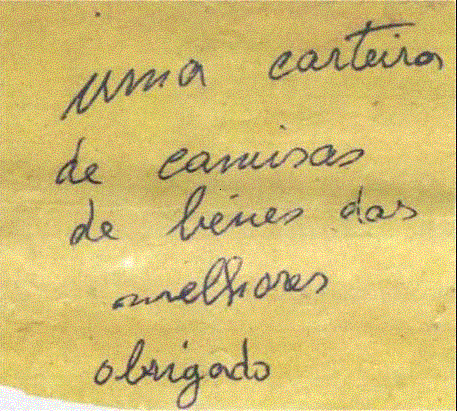 uma carteira
de camisas
de vénes das
melhores
obrigado